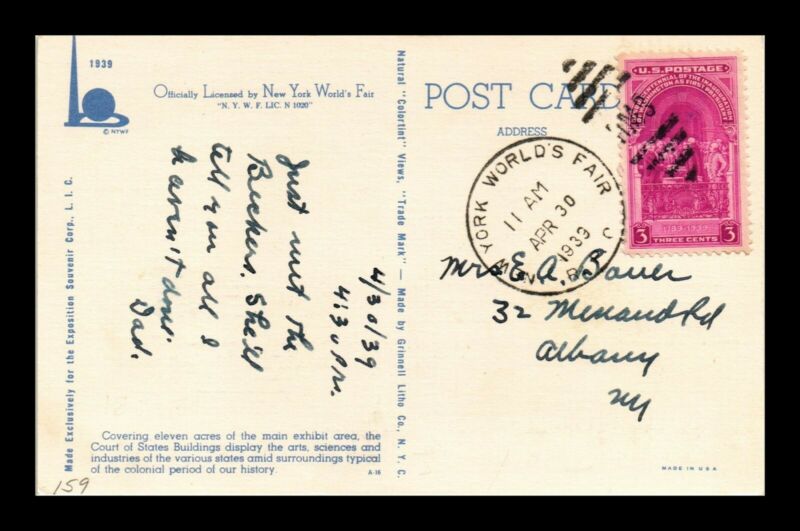 1939
© NYWF
Officially Licensed by New York World's Fair
"N. Y. W. F. LIC. N 1020"
Made Exclusively for the Exposition Souvenir Corp., L. I. C.
4/30/39
4:30 P.M.
Just met the
Beckers. She'll
tell you all I
haven't done.
Dad.
Covering eleven acres of the main exhibit area, the
Court of States Buildings display the arts, sciences and
industries of the various states amid surroundings typical
of the colonial period of our history.
A-16
159
Natural "Colortint" Views, "Trade Mark" — Made by Grinnell Litho Co., N. Y. C.
POST CARD
ADDRESS
YORK WORLD'S FAIR
11 AM
APR 30
1939
U.S. POSTAGE
1789-1939
3 THREE CENTS 3
Mrs E. A. Bauer
32 Menand Rd
Albany
NY
MADE IN U.S.A.